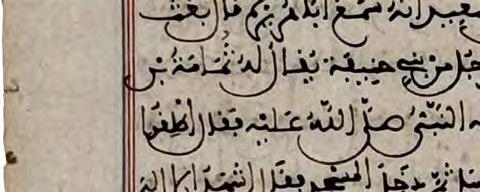 سعيد انه سمع ابا هريرة قال بعث
رجل من بني حنيفة يقال له ثمامة بن
النبي صلى الله عليه فقال اطلقوا
ثم دخل المسجد فقال اشهد ان لا اله